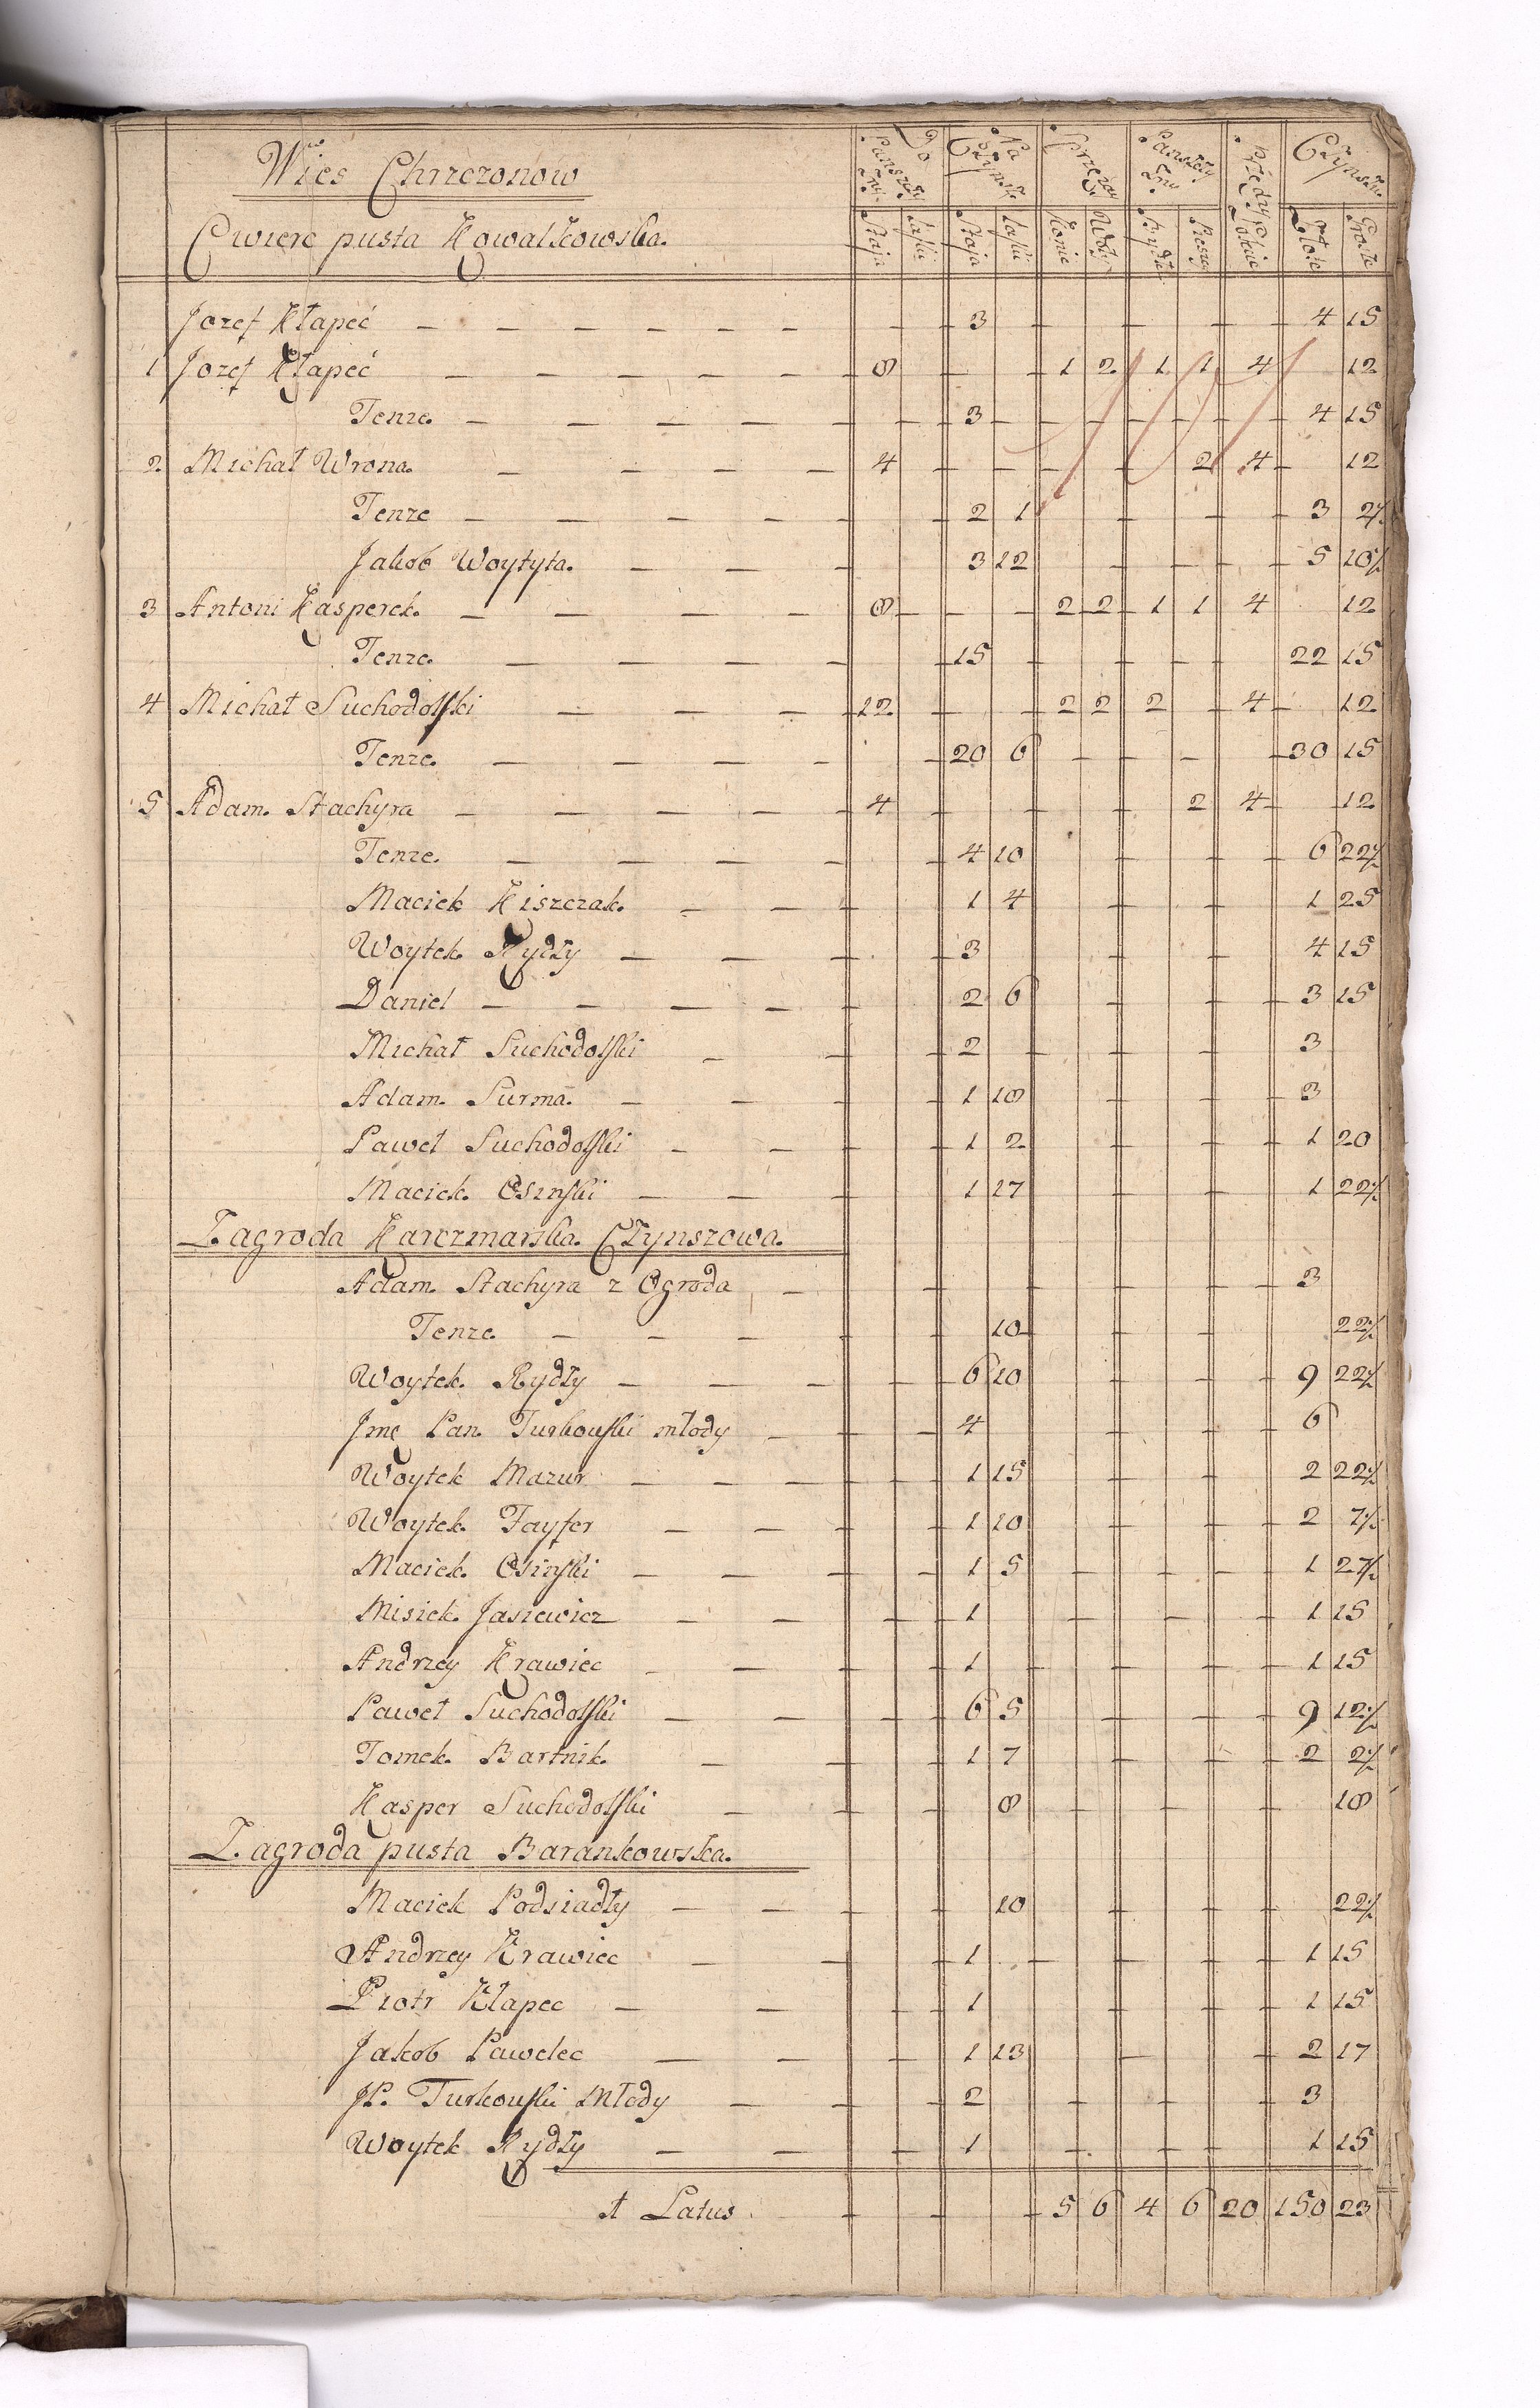 Wies Chrzczonow
Cwierc pusta Kowalkowska.
Do Panszczyzny Staja Łaski
Na Czynsz Staja Łaski
Sprzezay Konie Woły
Panszczyzny Bydłem Pieszo
Przędzy Łokcie
Czynszu Złote Grosze
Jozef Kłapeć 3 4 15
1 Jozef Kłapeć 8 1 2 1 1 4 12
Tenze 3 4 15
2 Michał Wrona 4 2 4 12
Tenze 2 1 3 2½
Jakob Woytyta 3 12 5 10½
3 Antoni Kasperek 8 2 2 1 1 4 12
Tenze 15 22 15
4 Michał Suchodolski 12 2 2 2 4 12
Tenze 20 6 30 15
5 Adam Stachyra 4 2 4 12
Tenze 4 10 6 22½
Maciek Kiszczak 1 4 1 25
Woytek Rydły 3 4 15
Daniel 2 6 3 15
Michał Suchodolski 2 3
Adam Surma 1 18 3
Paweł Suchodolski 1 2 1 20
Maciek Osinski 1 17 1 22½
Zagroda Karczmarska Czynszowa.
Adam Stachyra z Ogroda 3
Tenze 10 22½
Woytek Rydły 6 10 9 22½
Jmć Pan Turkowski młody 4 6
Woytek Mazur 1 15 2 22½
Woytek Fayfer 1 10 2 7½
Maciek Osinski 1 5 1 27½
Misiek Jasiewicz 1 1 15
Andrzey Krawiec 1 1 15
Paweł Suchodolski 6 5 9 12½
Tomek Bartnik 1 7 2 2½
Kasper Suchodolski 8 18
Zagroda pusta Barankowska.
Maciek Podsiadły 10 22½
Andrzey Krawiec 1 1 15
Piotr Kłapec 1 1 15
Jakob Pawelec 1 13 2 17
JP. Turkowski Młody 2 3
Woytek Rydły 1 1 15
A Latus 5 6 4 6 20 150 23